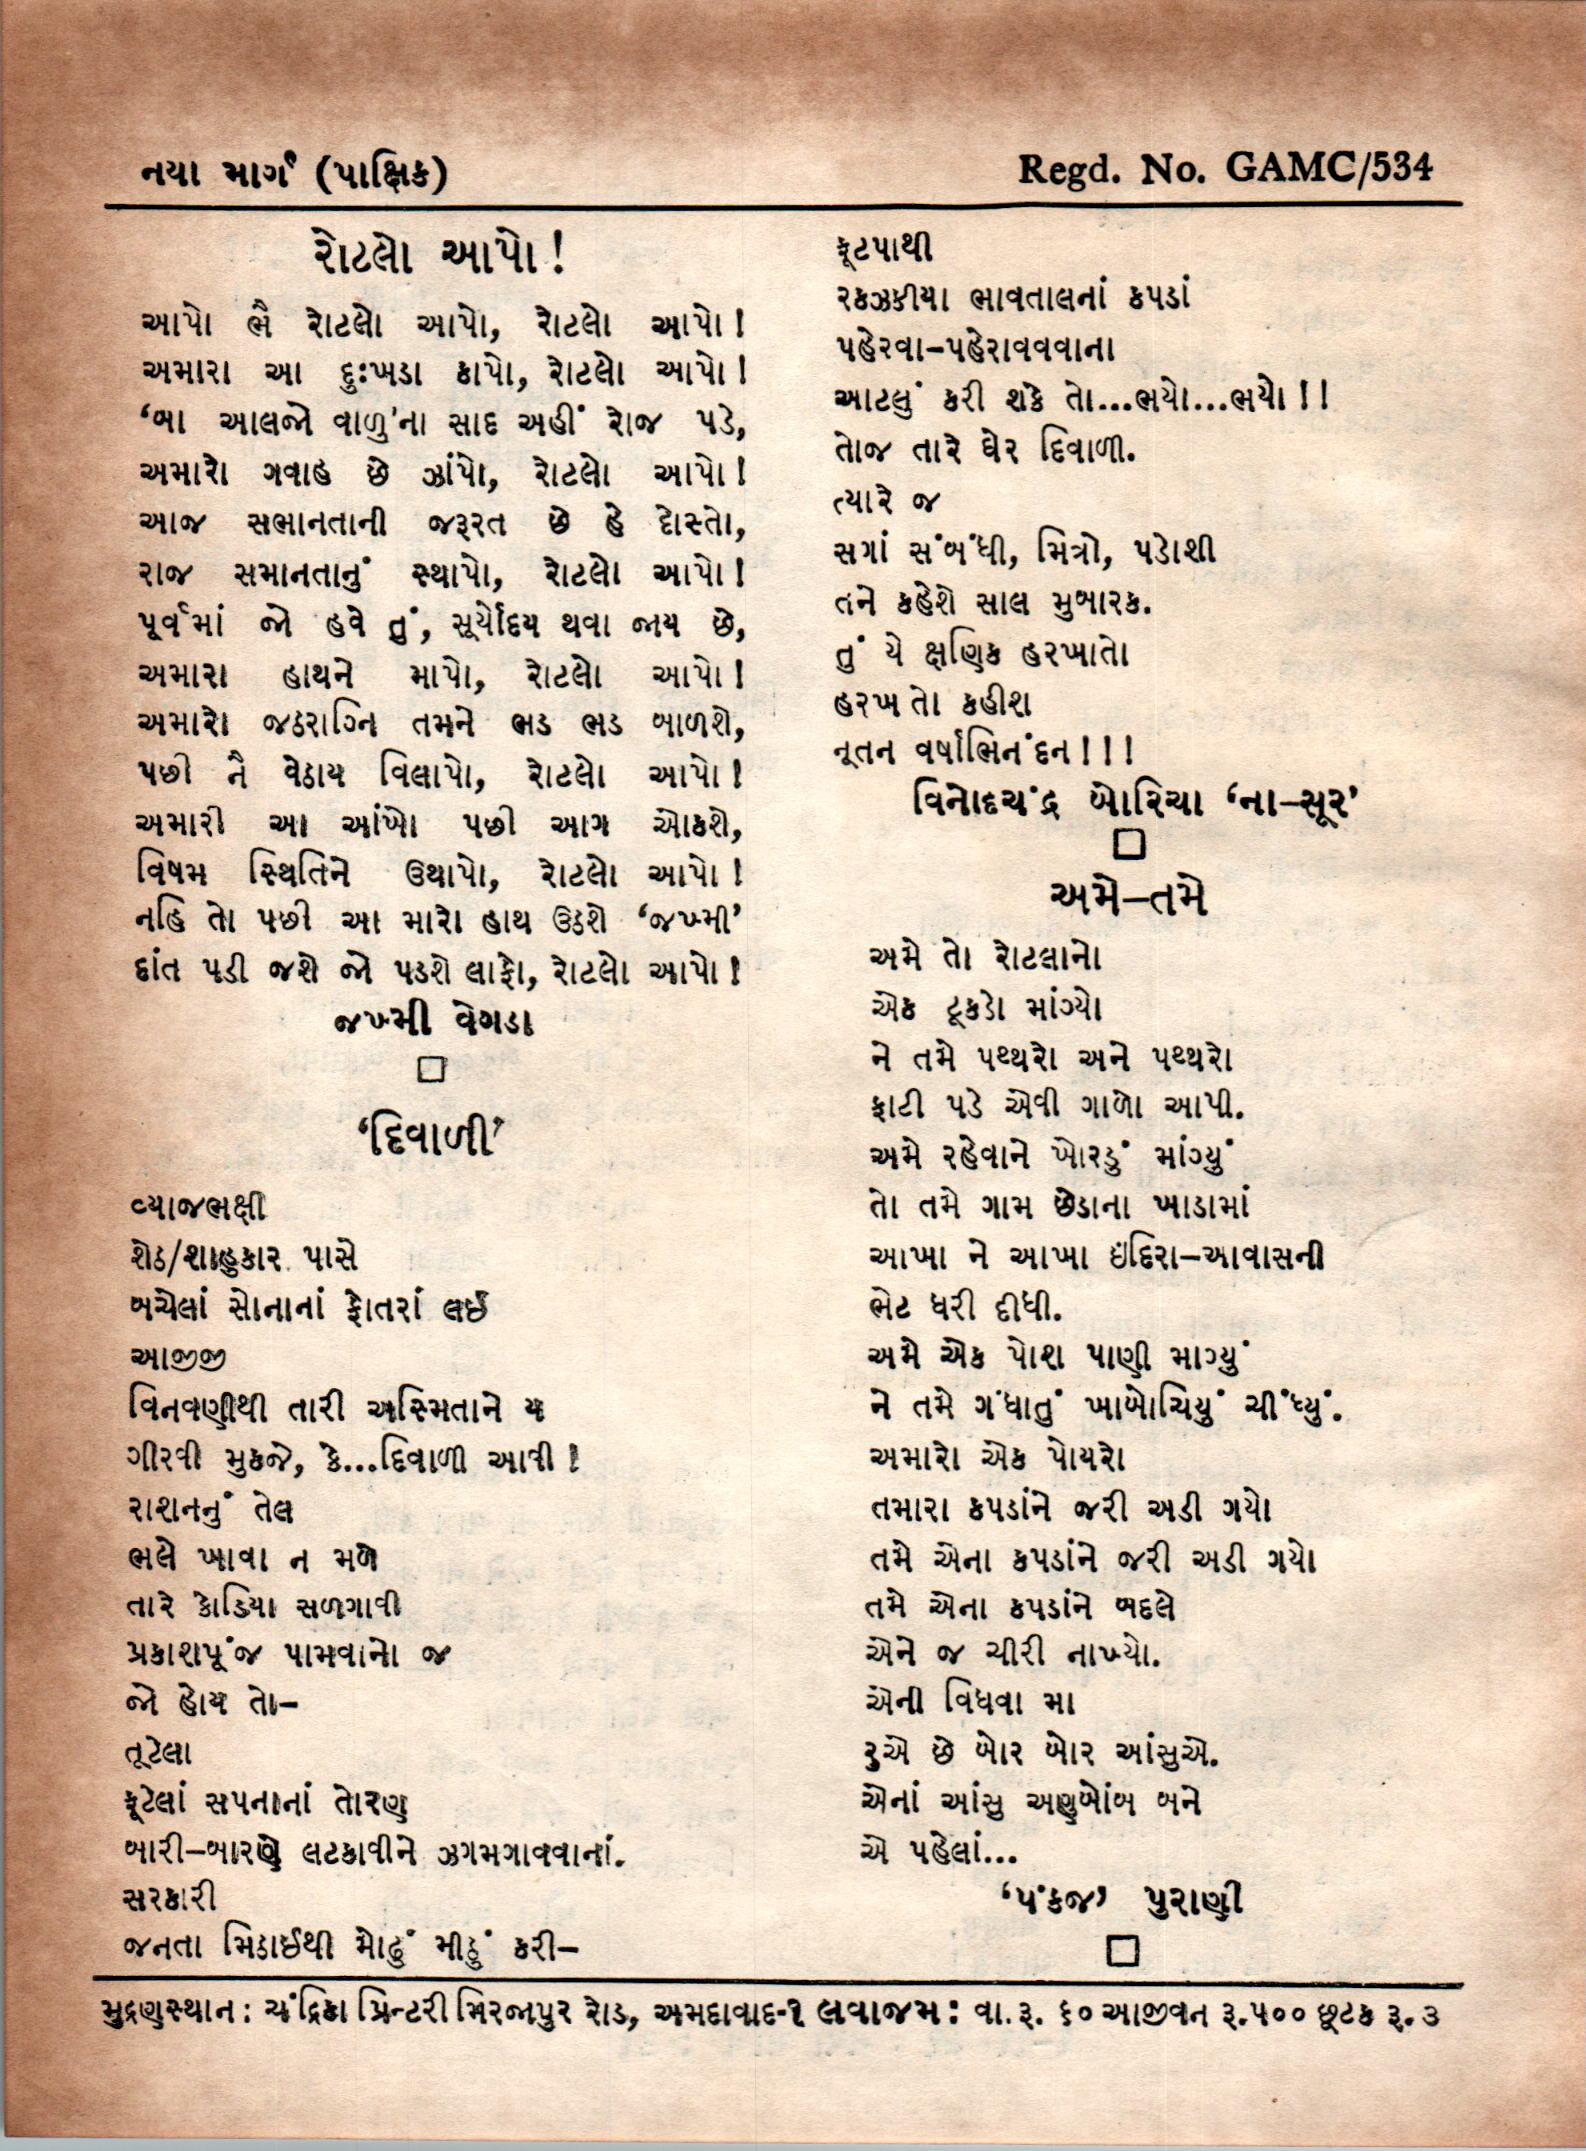 નયા માર્ગ (પાક્ષિક)
Regd. No. GAMC/534
રોટલો આપો !
આપો ભૈ રોટલો આપો, રોટલો આપો !
અમારા આ દુઃખડા કાપો, રોટલો આપો !
‘બા આલજો વાળુ’ના સાદ અહીં રોજ પડે,
અમારો ગવાહ છે ઝાંપો, રોટલો આપો !
આજ સભાનતાની જરૂરત છે હે દોસ્તો,
રાજ સમાનતાનું સ્થાપો, રોટલો આપો !
પૂર્વમાં જો હવે તું, સૂર્યોદય થવા જાય છે,
અમારા હાથને માપો, રોટલો આપો !
અમારો જઠરાગ્નિ તમને ભડ ભડ બાળશે,
પછી નૈ વેઠાય વિલાપો, રોટલો આપો !
અમારી આ આંખો પછી આગ ઓકશે,
વિષમ સ્થિતિને ઉથાપો, રોટલો આપો !
નહિ તો પછી આ મારો હાથ ઉઠશે ‘જખ્મી’
દાંત પડી જશે જો પડશે લાફો, રોટલો આપો !
જખ્મી વેગડા
‘દિવાળી’
વ્યાજભક્ષી
શેઠ/શાહુકાર પાસે
બચેલાં સોનાનાં ફોતરાં લઈ
આજીજી
વિનવણીથી તારી અસ્મિતાને ય
ગીરવી મુકજે, કે...દિવાળી આવી !
રાશનનું તેલ
ભલે ખાવા ન મળે
તારે કોડિયા સળગાવી
પ્રકાશપૂંજ પામવાનો જ
જો હોય તો–
તૂટેલા
ફૂટેલાં સપનાનાં તોરણ
બારી–બારણે લટકાવીને ઝગમગાવવાનાં.
સરકારી
જનતા મિઠાઈથી મોઢું મીઠું કરી–
ફૂટપાથી
રકઝકીયા ભાવતાલનાં કપડાં
પહેરવા–પહેરાવવવાના
આટલું કરી શકે તો...ભયો...ભયો ! !
તોજ તારે ઘેર દિવાળી.
ત્યારે જ
સગાં સંબંધી, મિત્રો, પડોશી
તને કહેશે સાલ મુબારક.
તું યે ક્ષણિક હરખાતો
હરખ તો કહીશ
નૂતન વર્ષાભિનંદન ! ! !
વિનોદચંદ્ર બોરિચા ‘ના–સૂર’
અમે–તમે
અમે તો રોટલાનો
એક ટૂકડો માંગ્યો
ને તમે પથ્થરો અને પથ્થરો
ફાટી પડે એવી ગાળો આપી.
અમે રહેવાને ખોરડું માંગ્યું
તો તમે ગામ છેડાના ખાડામાં
આખા ને આખા ઇંદિરા–આવાસની
ભેટ ધરી દીધી.
અમે એક પોશ પાણી માગ્યું
ને તમે ગંધાતું ખાબોચિયું ચીંધ્યું.
અમારો એક પોયરો
તમારા કપડાંને જરી અડી ગયો
તમે એના કપડાંને જરી અડી ગયો
તમે એના કપડાંને બદલે
એને જ ચીરી નાખ્યો.
એની વિધવા મા
રુએ છે બોર બોર આંસુએ.
એનાં આંસુ અણુબોંબ બને
એ પહેલાં...
‘પંકજ’ પુરાણી
મુદ્રણસ્થાન : ચંદ્રિકા પ્રિન્ટરી મિરજાપુર રોડ, અમદાવાદ-૧ લવાજમ : વા. રૂ. ૬૦ આજીવન રૂ. ૫૦૦ છૂટક રૂ. ૩